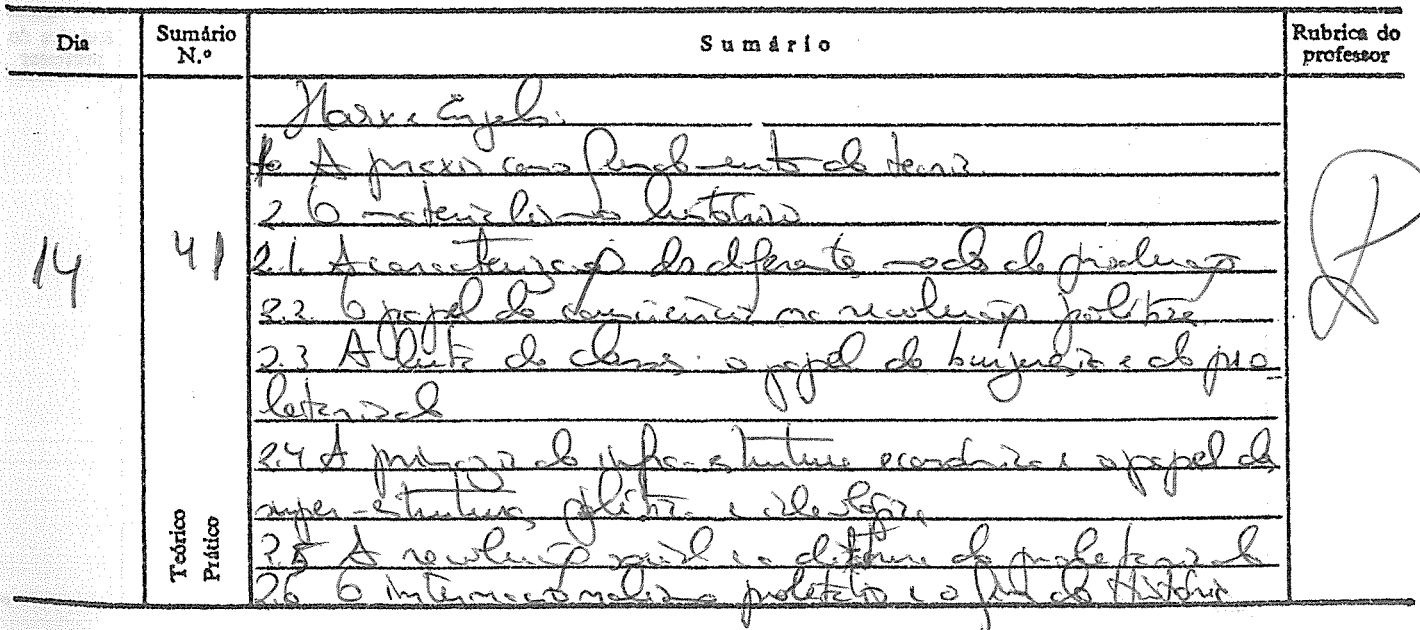 Dia
Sumário N.º
Sumário
Rubrica do professor
14
41
Teórico
Prático
Marx e Engels.
1. A praxis como fundamento da teoria.
2. O materialismo histórico
2.1. A caracterização dos diferentes modos de produção
2.2. O papel da consciência na revolução política
2.3 A luta de classes: o papel da burguesia e do pro-
letariado
2.4 A primazia da infra-estrutura económica e o papel da
super-estrutura política e ideológica
2.5 A revolução social e a ditadura do proletariado
2.6 O internacionalismo proletário e o fim da História